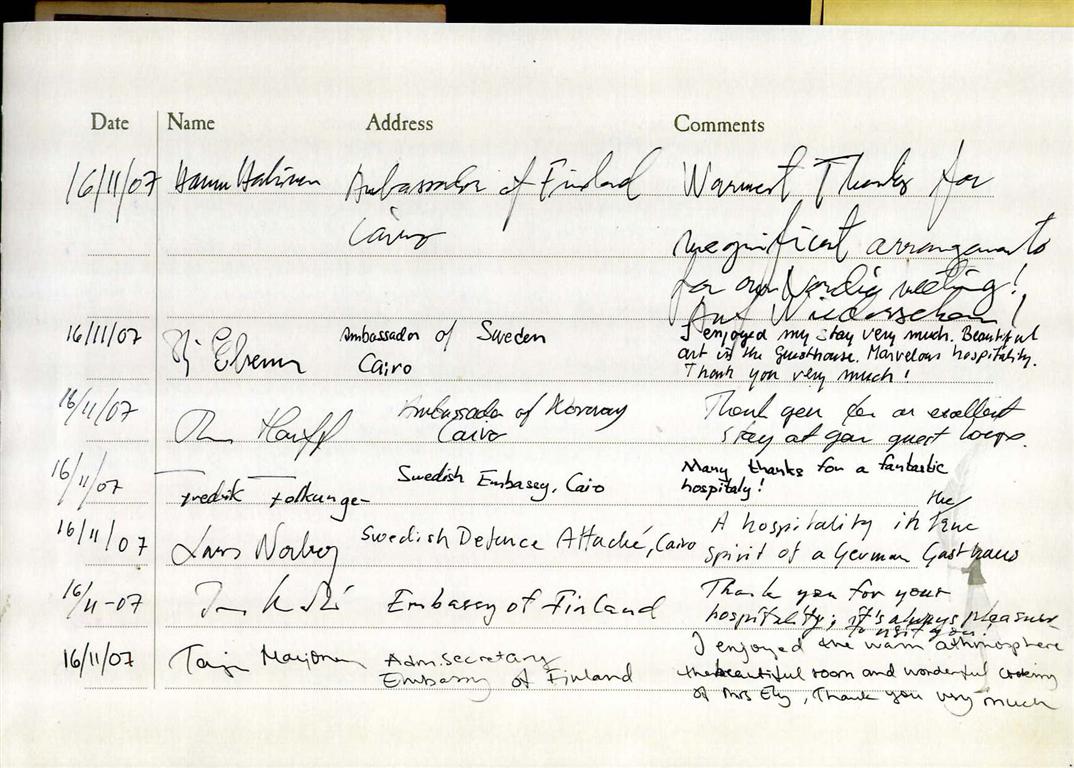 Date Name Address Comments
16/11/07 Hannu Halinen Ambassador of Finland Warmest Thanks for
Cairo
magnificent arrangements
for our Nordic meeting!
Auf Wiederschen!
16/11/07 Ambassador of Sweden I enjoyed my stay very much. Beautiful
Cairo art in the guesthouse. Marvelous hospitality.
Thank you very much!
16/11/07 Ambassador of Norway Thank you for an excellent
Cairo stay at your guest
16/11/07 Fredrik Swedish Embassy, Cairo Many thanks for a fantastic
hospitaly!
16/11/07 Lars Norberg Swedish Defence Attaché, Cairo A hospitality in the true
spirit of a German Gasthaus
16/11-07 Embassy of Finland Thank you for your
hospitality; it's always pleasure
to visit you!
16/11/07 Tarja Adm. secretary I enjoyed the warm athmosphere
Embassy of Finland the beautiful room and wonderful
of Mrs Ely, Thank you very much